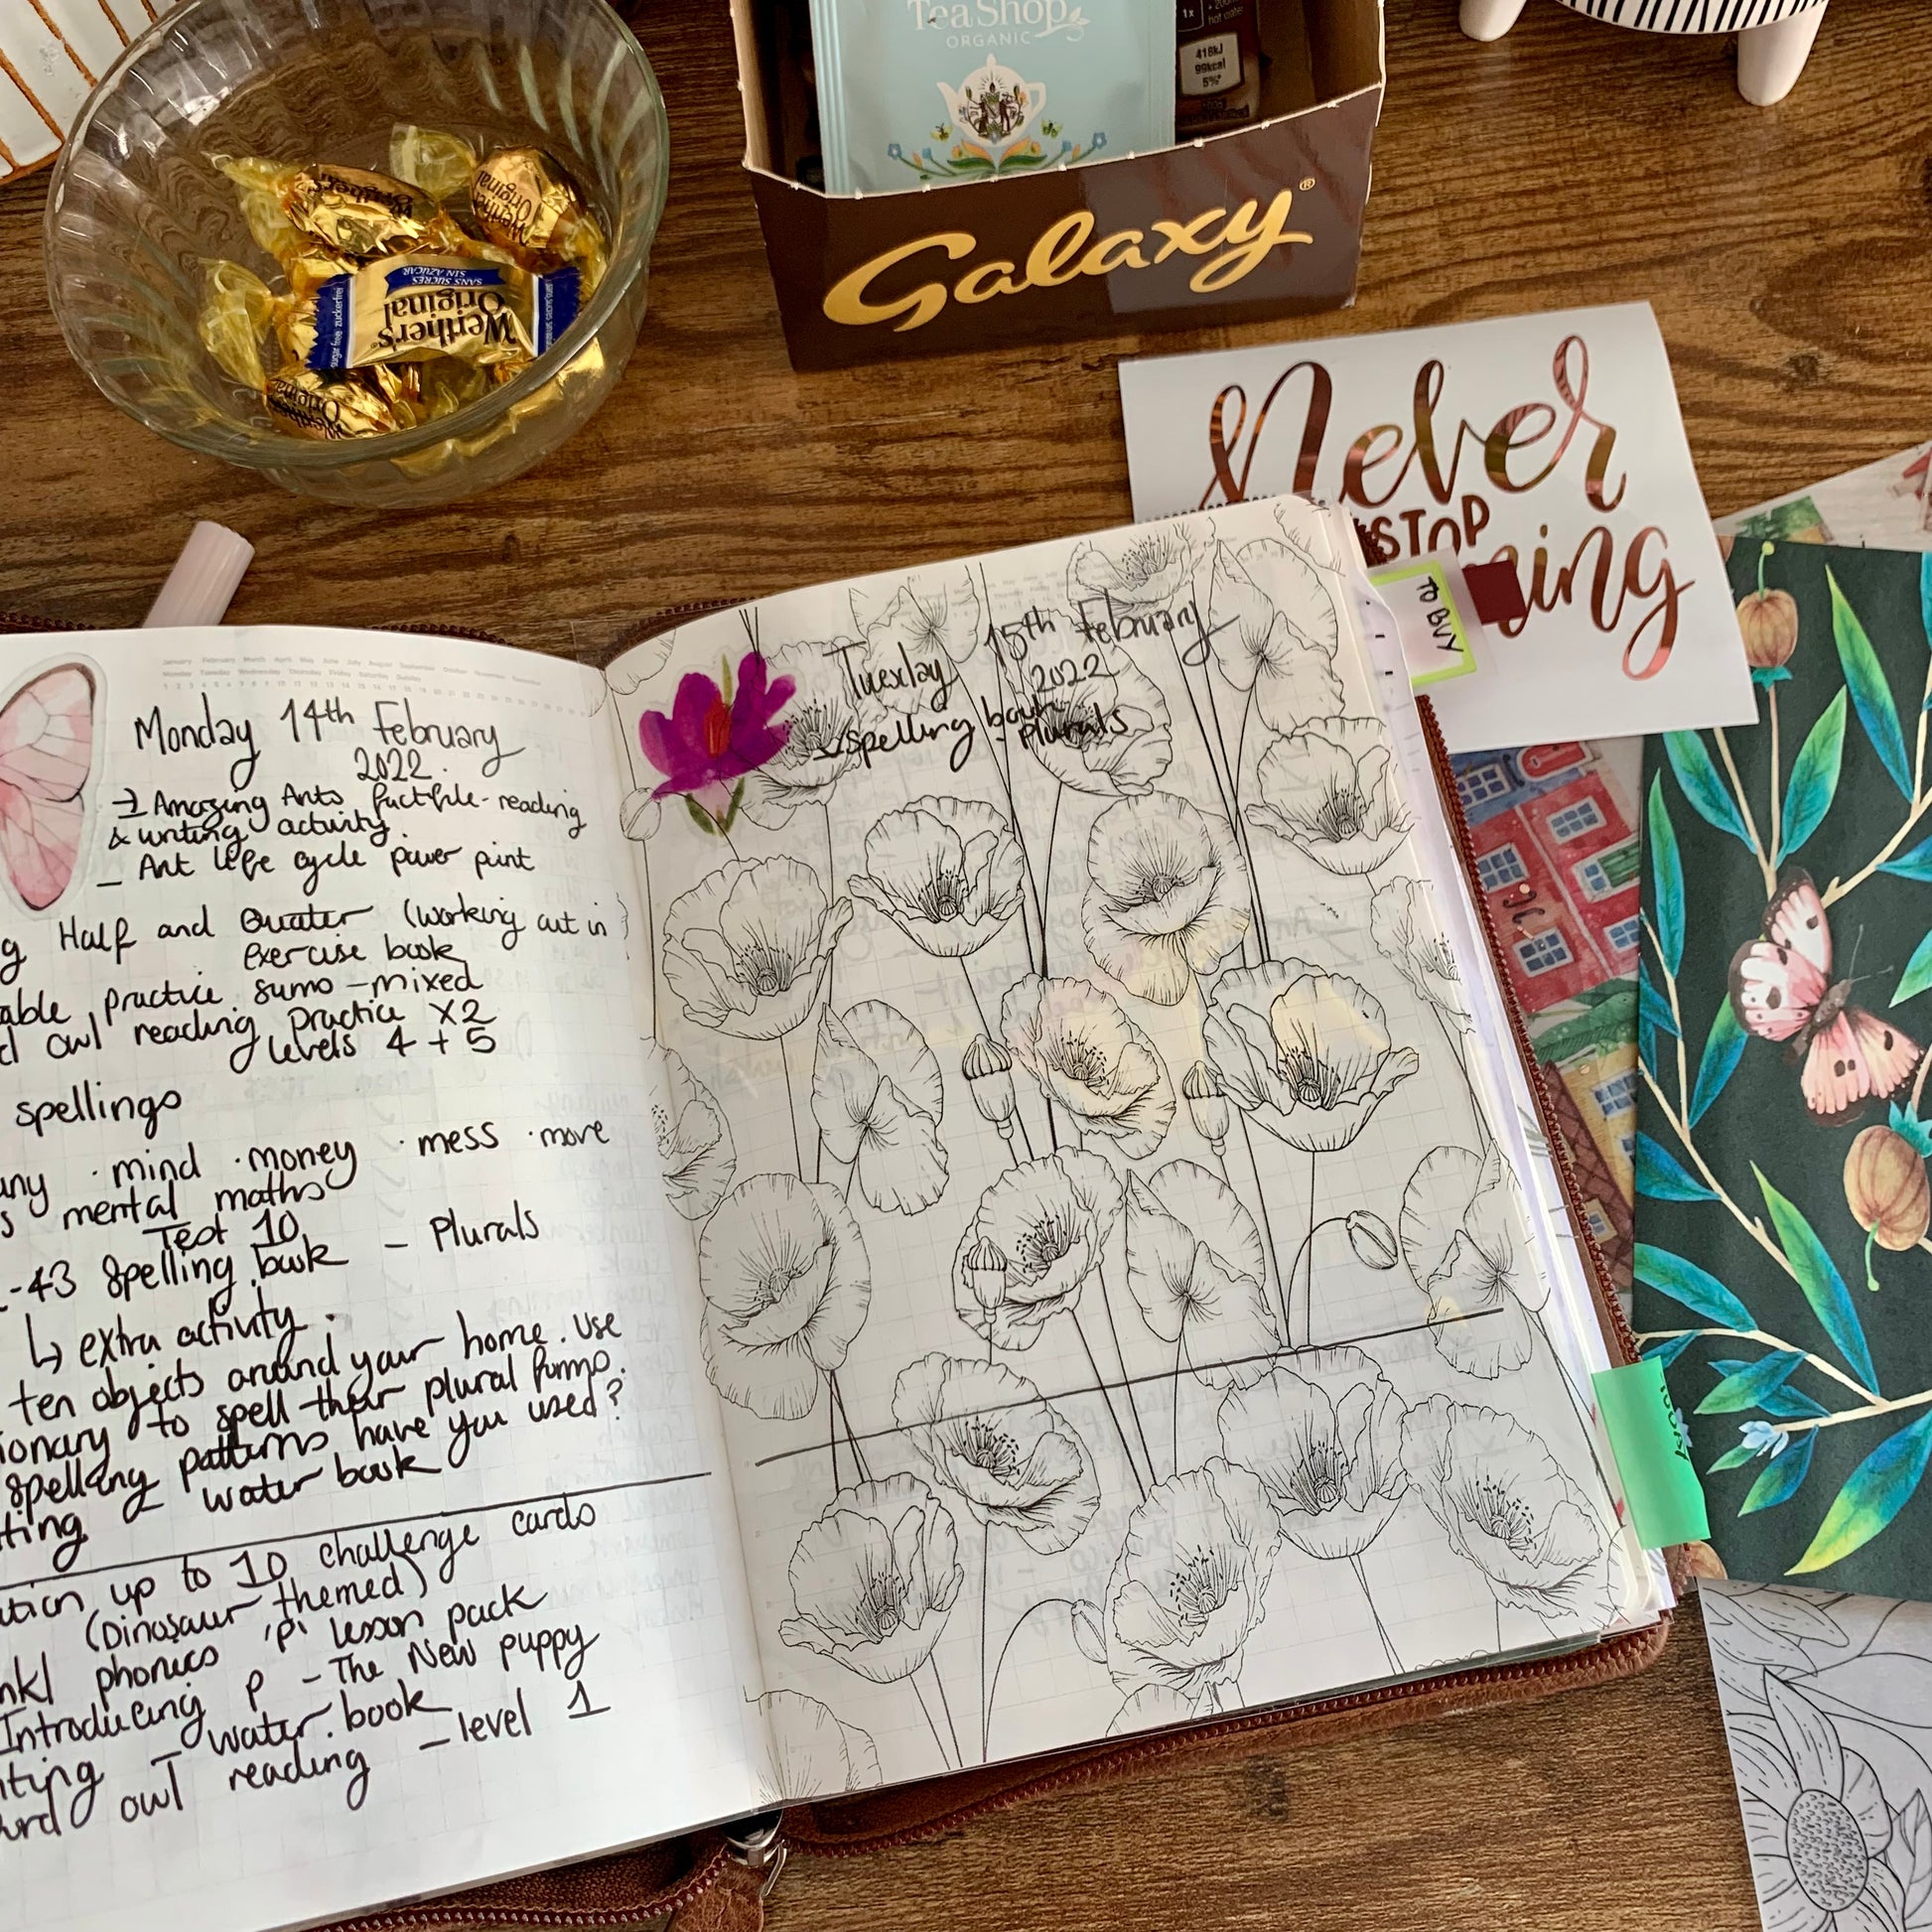 TeaShop
ORGANIC
1x
hot water
418kJ
99kcal
5%*
Galaxy®
Werther's
Original
Werther's
Original
SANS SUCRES
SIN AZÚCAR
Werther's
Original
sugar free zuckerfrei
Werther's
Original
Never
STOP
ning
TO BUY
January February March April May June July August September October November December
Monday Tuesday Wednesday Thursday Friday Saturday Sunday
Monday 14th February
2022.
→ Amazing Ants factfile - reading
& writing activity.
- Ant life cycle power point
g Half and Quater (working out in
exercise book
able practice sumo - mixed
owl reading practice x2
levels 4 + 5
spellings
any · mind · money · mess · move
s mental maths
Test 10
-43 spelling book - Plurals
↳ extra activity.
ten objects around your home. Use
ionary to spell their plural forms.
spelling patterns have you used?
ting - water book
ition up to 10 challenge cards
(Dinosaur themed)
nkl phonics 'p' lesson pack
Introducing p - The New puppy
iting - water book
owl reading - level 1
Tuesday 15th February
2022
- spelling book
- Plurals